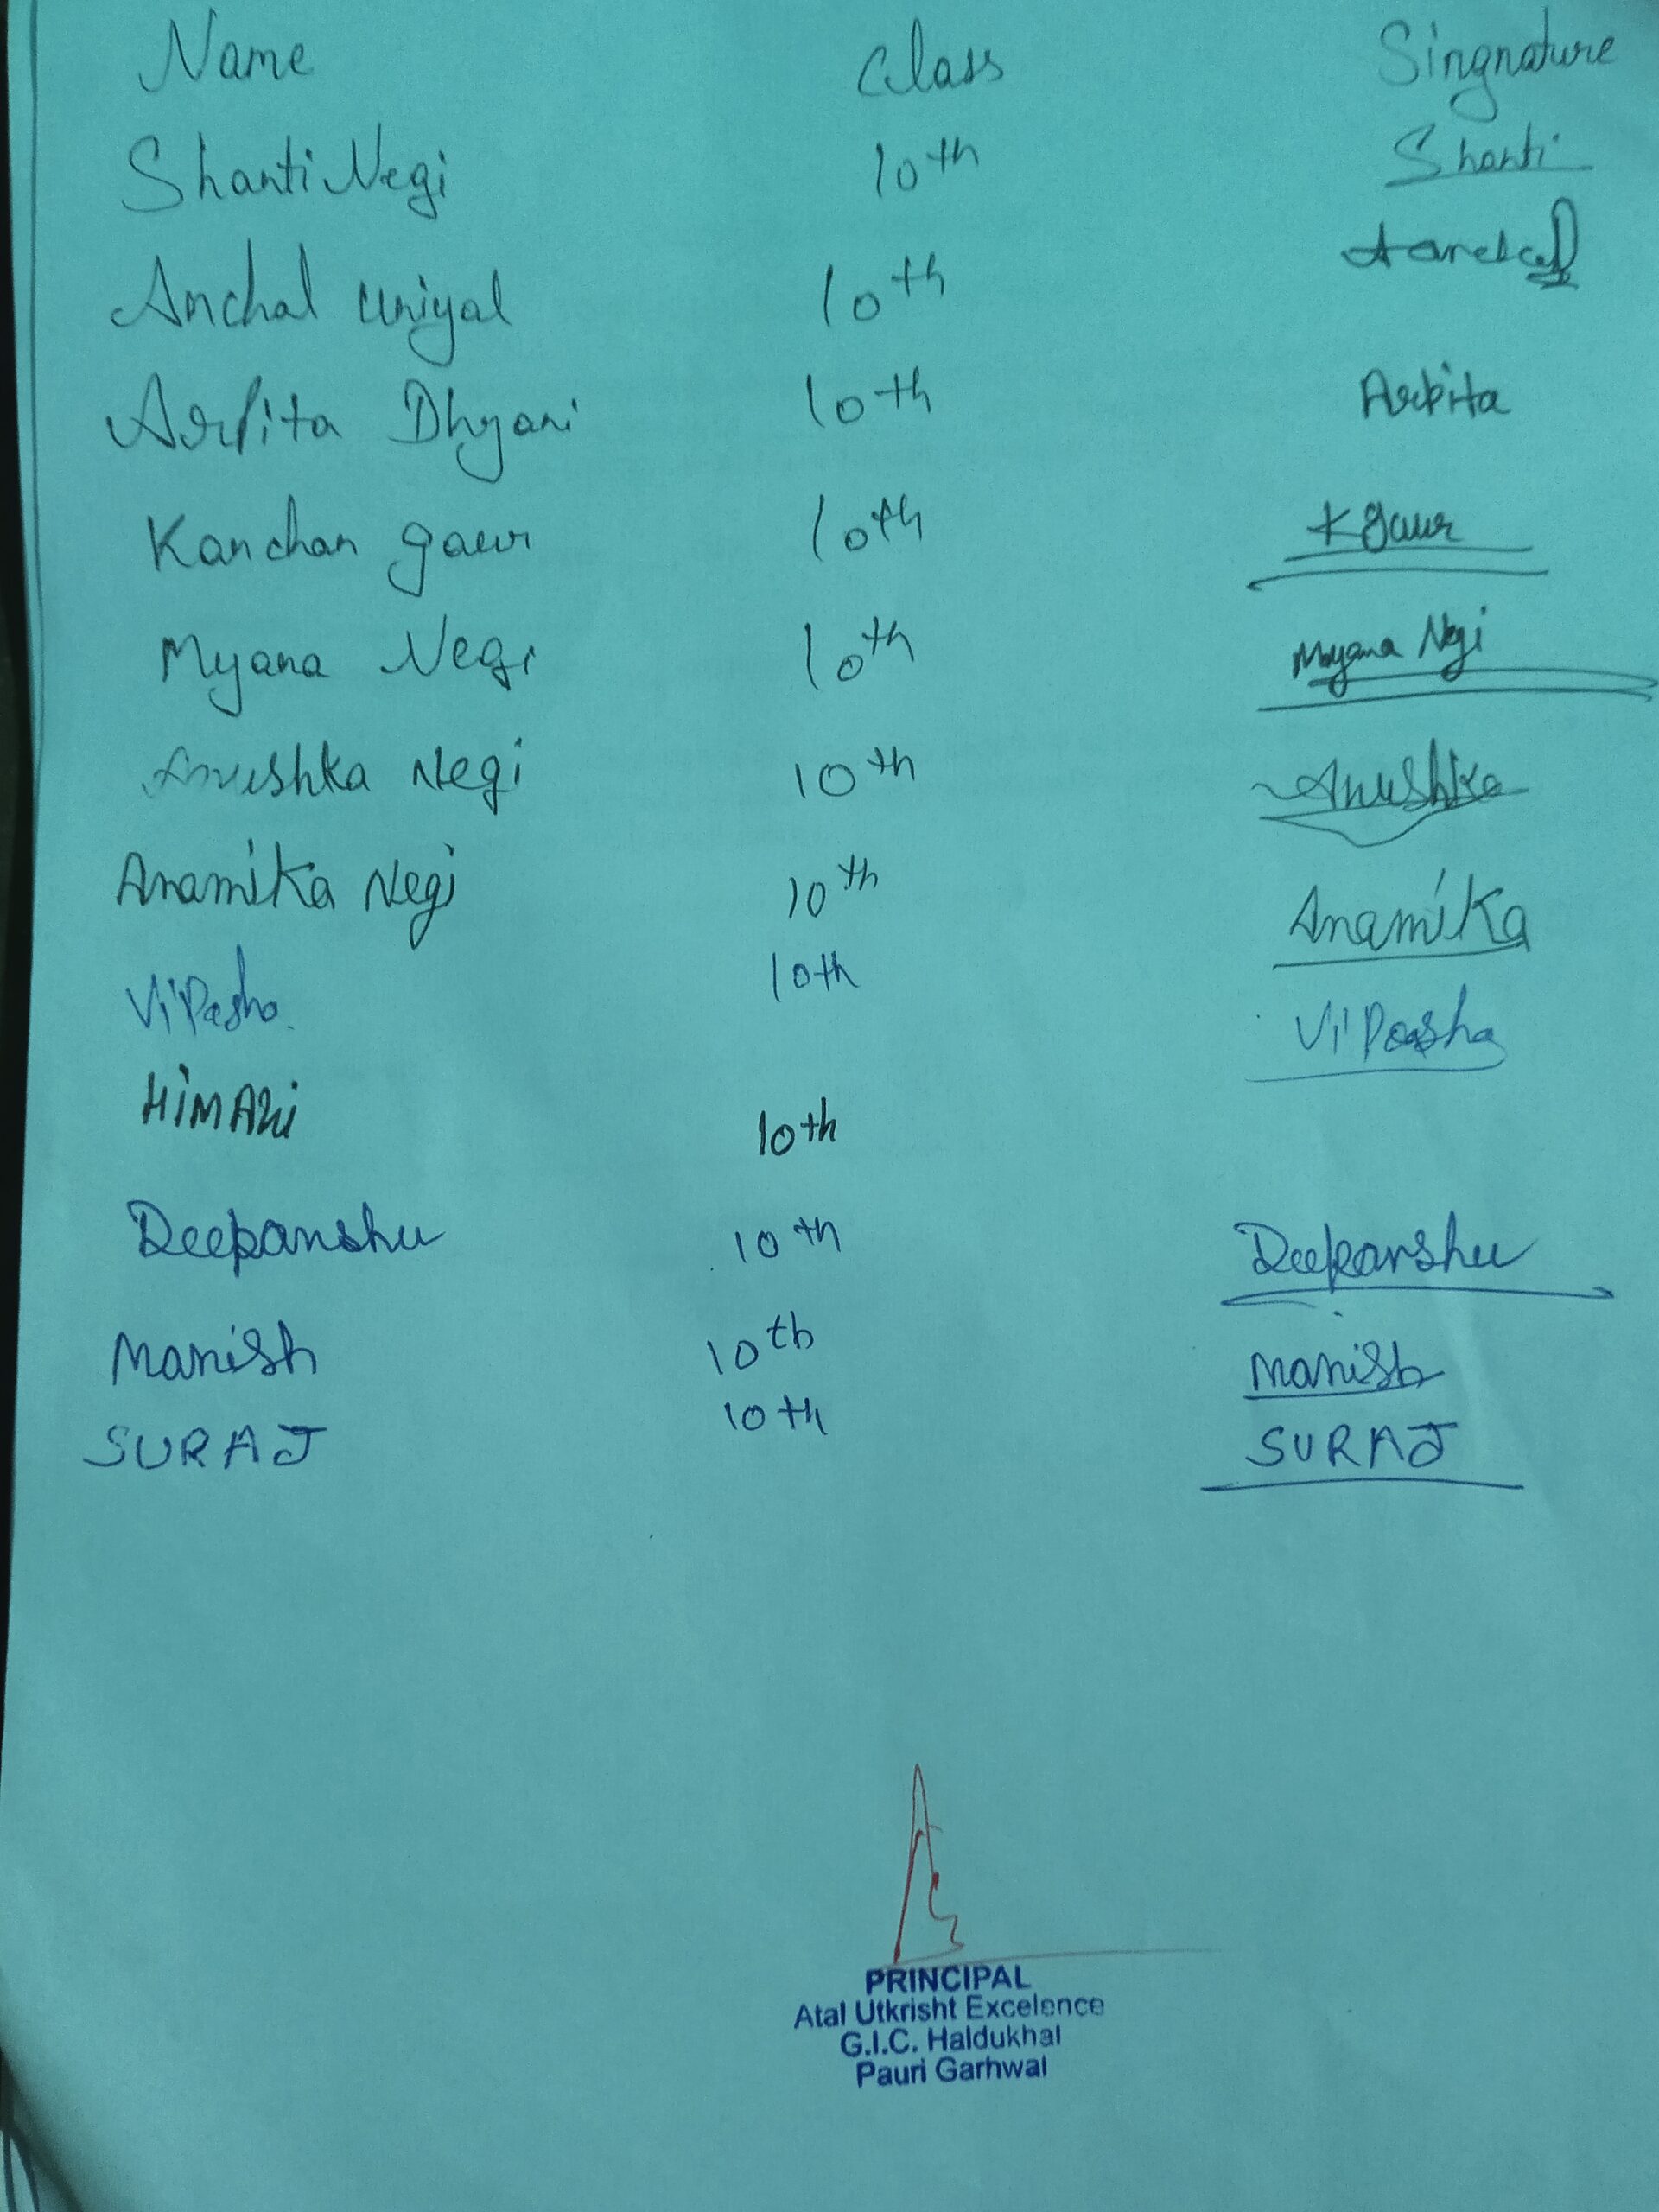 Name Class Singnature
Shanti Negi 10th Shanti
Anchal Uniyal 10th Aanchal
Arpita Dhyani 10th Arpita
Kanchan gaur 10th K gaur
Myana Negi 10th Myana Negi
Anushka Negi 10th Anushka
Anamika Negi 10th Anamika
ViPasha. 10th ViPasha
HiMANi 10th
Deepanshu 10th Deepanshu
Manish 10th Manish
SURAJ 10th SURAJ
PRINCIPAL
Atal Utkrisht Excelence
G.I.C. Haldukhal
Pauri Garhwal